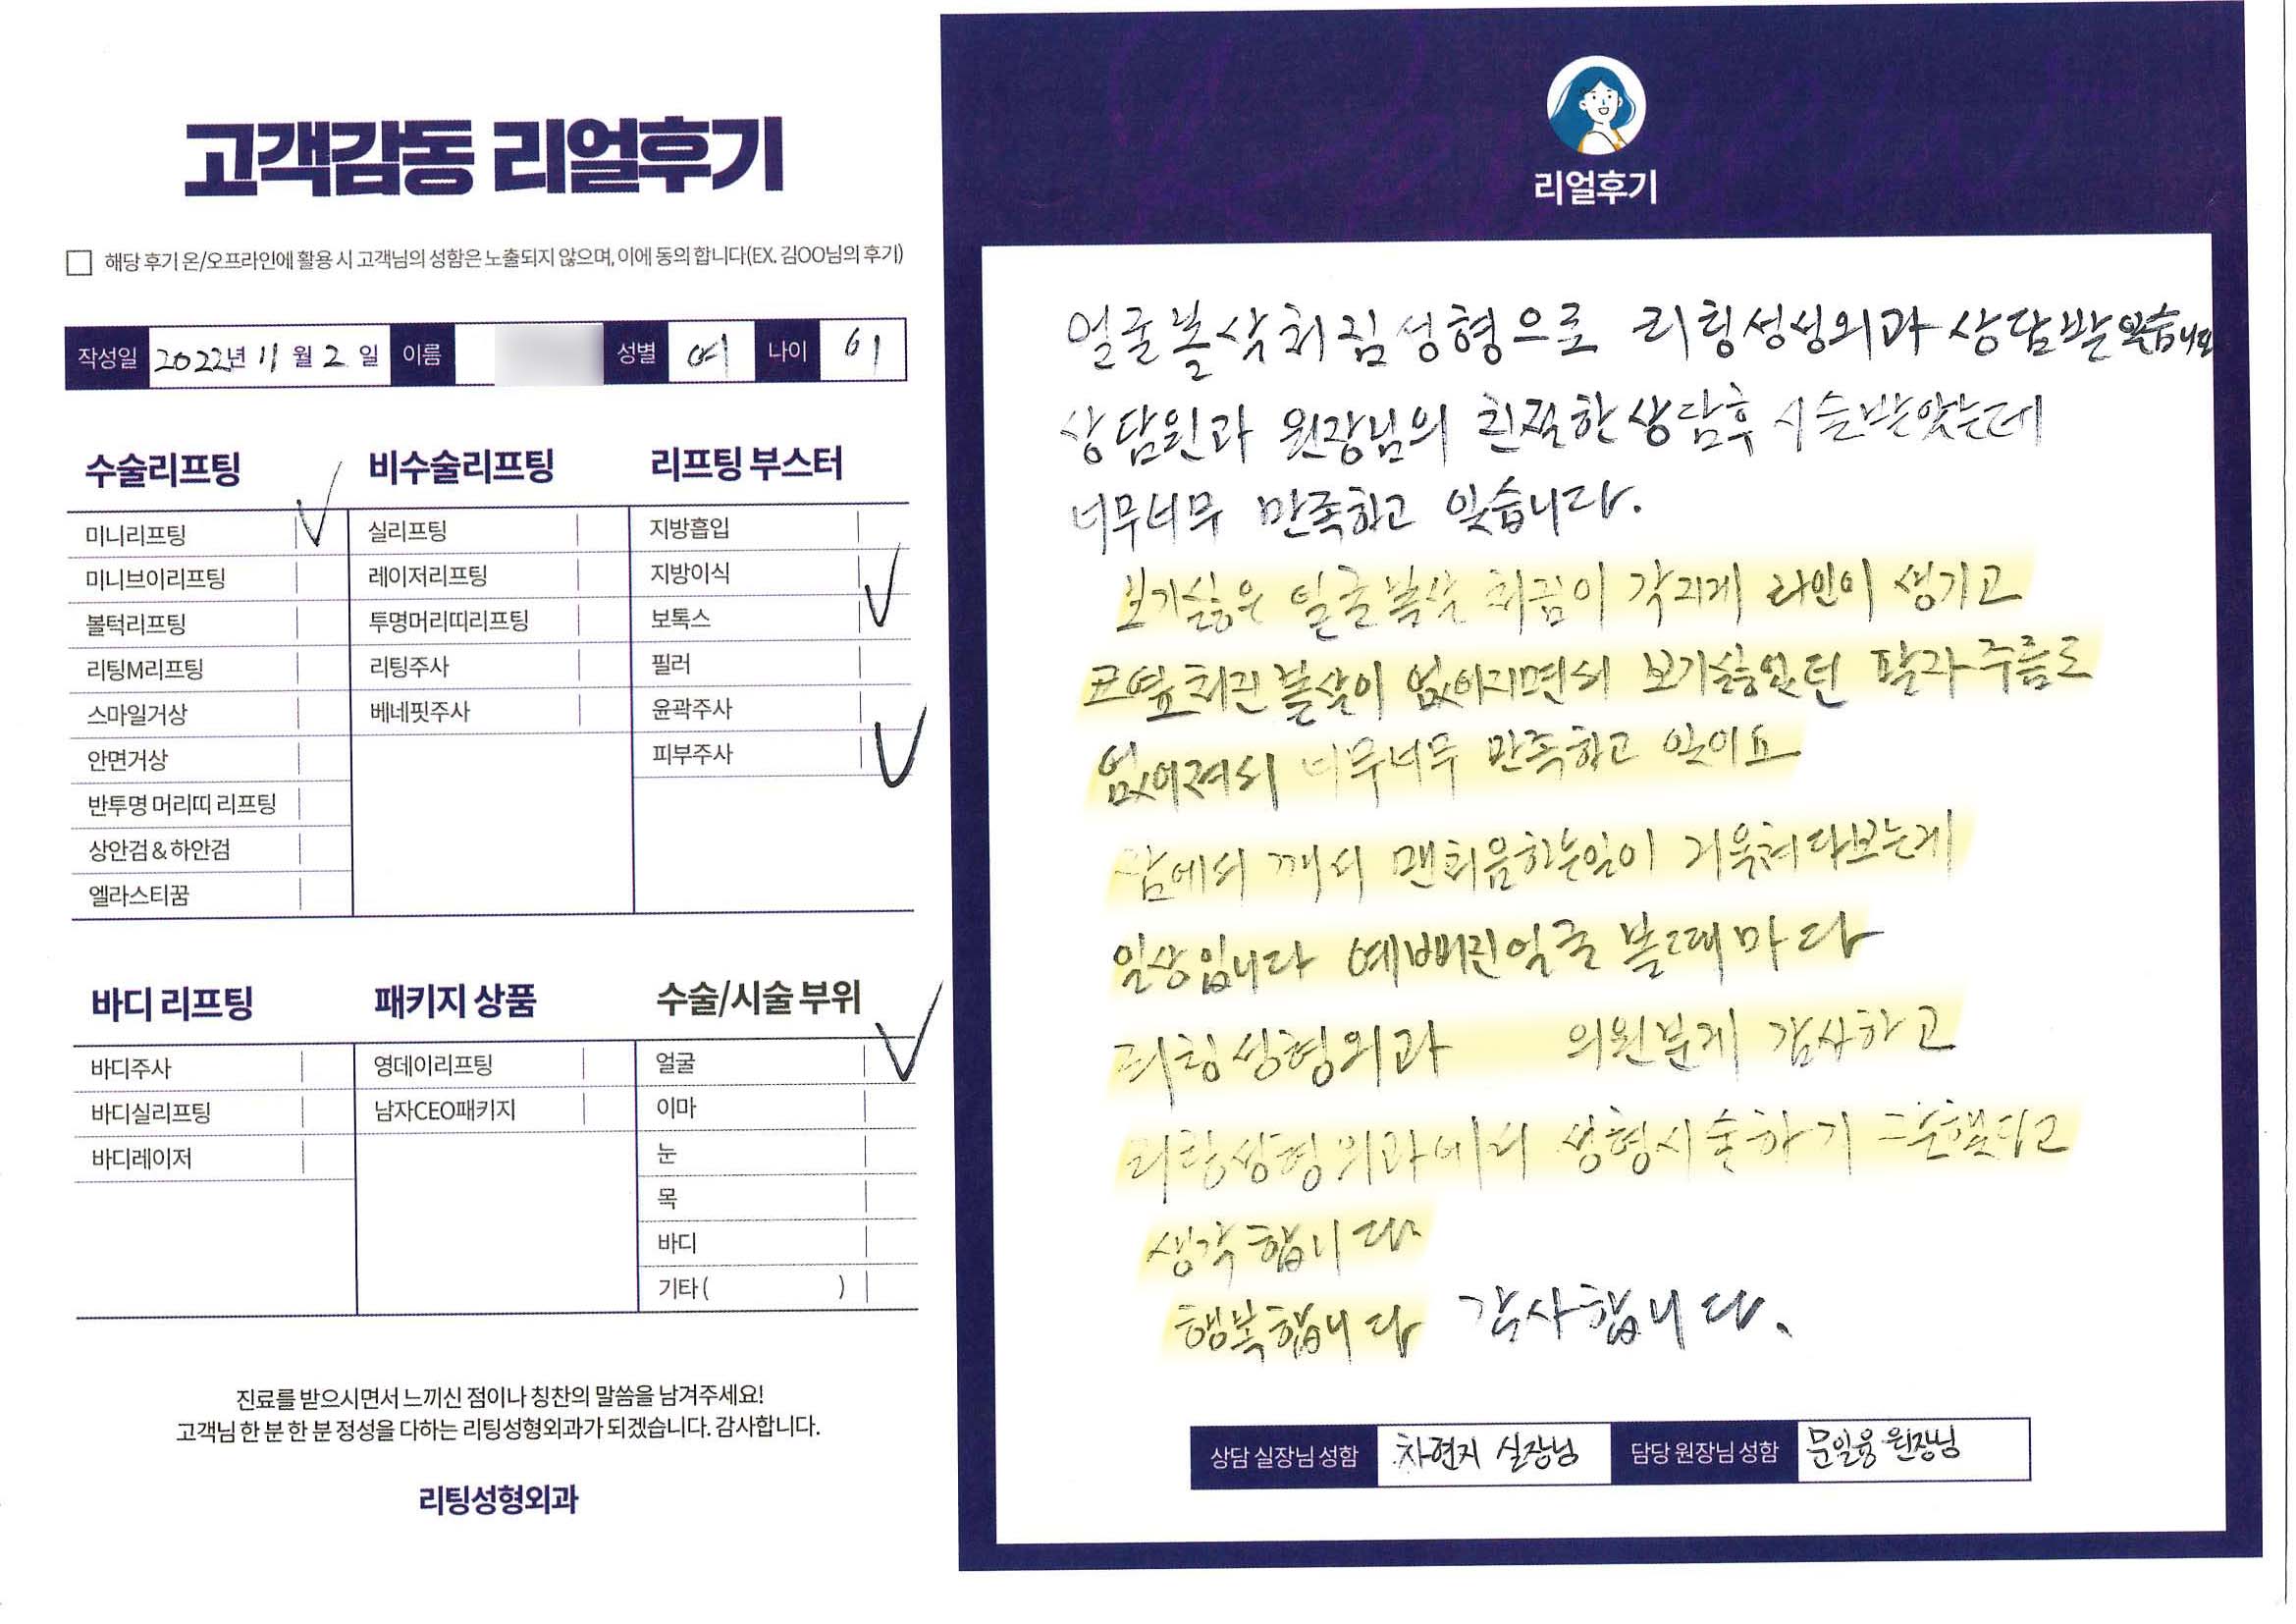 고객감동 리얼후기
해당 후기 온/오프라인에 활용 시 고객님의 성함은 노출되지 않으며, 이에 동의 합니다(EX. 김OO님의 후기)
작성일 2022년 11월 2일 이름 성별 여 나이 61
수술리프팅
미니리프팅 ✓
미니브이리프팅
볼턱리프팅
리팅M리프팅
스마일거상
안면거상
반투명 머리띠 리프팅
상안검 & 하안검
엘라스티꿈
비수술리프팅
실리프팅
레이저리프팅
투명머리띠리프팅
리팅주사
베네핏주사
리프팅 부스터
지방흡입
지방이식
보톡스 ✓
필러
윤곽주사
피부주사 ✓
바디 리프팅
바디주사
바디실리프팅
바디레이저
패키지 상품
영데이리프팅
남자CEO패키지
수술/시술 부위
얼굴 ✓
이마
눈
목
바디
기타 ( )
진료를 받으시면서 느끼신 점이나 칭찬의 말씀을 남겨주세요!
고객님 한 분 한 분 정성을 다하는 리팅성형외과가 되겠습니다. 감사합니다.
리팅성형외과
리얼후기
얼굴볼살처짐성형으로 리팅성성외과 상담받았습니다
상담원과 원장님의 친절한 상담후 시술받았는데
너무너무 만족하고 있습니다.
보기싫은 얼굴볼살 처짐이 갸름하게 라인이 생기고
코옆 처진볼살이 없어지면서 보기싫었던 팔자주름도
없어져서 너무너무 만족하고 있어요
잠에서 깨서 맨처음하는일이 거울쳐다보는게
일상입니다 예뻐진얼굴 볼때마다
리팅성형외과 의원분게 감사하고
리팅성형외과에서 성형시술하기 잘했다고
생각합니다
행복합니다 감사합니다.
상담 실장님 성함 차현지 실장님 담당 원장님 성함 문일웅 원장님